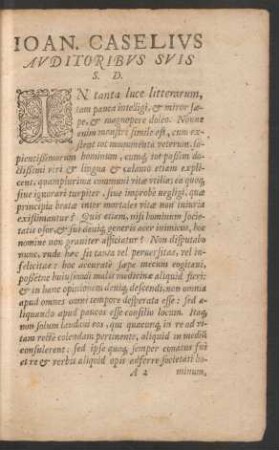 IOAN. CASELIVS
AVDITORIBVS SVIS
S. D.
IN tanta luce litterarum,
tam pauca intelligi, & miror sæ-
pe, & magnopere doleo. Nonne
enim monstri simile est, cum ex-
stent tot monumenta veterum, sa-
pientissimorum hominum, eumq́; tot passim do-
ctissimi viri & lingua & calamo etiam expli-
cent, quamplurima communi vitæ vtilia, ea quoq́,
siue ignorari turpiter, siue improbe negligi, quæ
principia beatæ inter mortales vitæ non iniuria
existimantur? Quis etiam, nisi hominum societa-
tis osor, & sui deniq́; generis acer inimicus, hoc
nomine non grauiter afficiatur? Non disputabo
nunc, vnde hæc sit tanta vel peruersitas, vel in-
felicitas: hoc accurate sæpe mecum cogitaui,
possetne huiusmodi malo medicina aliqua fieri:
& in hanc opinionem deniq́; descendi, non omnia
apud omnes omni tempore desperata esse: sed a-
liquando apud paucos esse consilio locum. Itaq́;
non solum laudaui eos, qui quacunq́; in re ad vi-
tam recte colendam pertinente, aliquid in mediũ
consulerent: sed ipse quoq́; semper conatus sum
et re & verbis aliquid opis adferre societati ho-
A 2 minum,